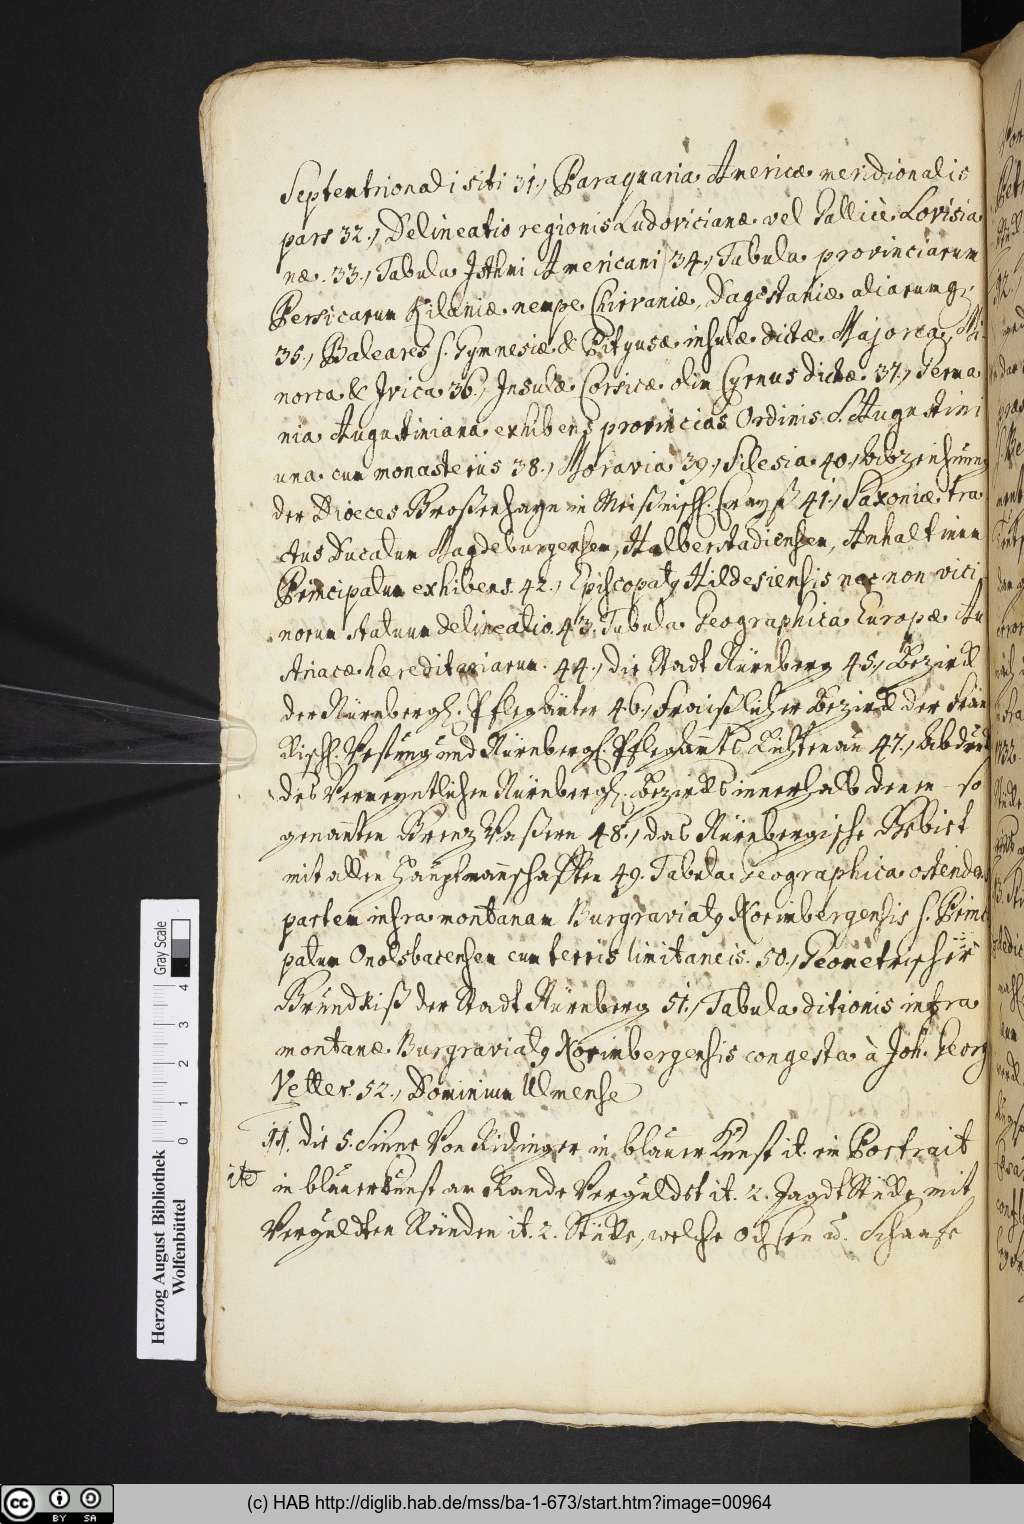 Septentrionali siti 31., Paraquaria Americæ meridionalis
pars 32., Delineatio regionis Ludovicianæ vel Gallicè Lovisia
næ. 33., Tabula Isthmi Americani, 34., Tabula provinciarum
Persicarum Kilaniæ nempe Chirvaniæ, Dagestaniæ aliarumq,
35., Baleares s. Gymnesiæ & Pityusæ insulæ dictæ Majorca, Mi-
norca & Ivica 36., Insulæ Corsicæ olim Cyrnus dictæ 37., Germa
nia Augustiniana exhibens provincias Ordinis S. Augustini
una cum monasteriis 38., Moravia 39., Silesia 40., Abzeichnung
der Dioeces Großenhayn in Meißnisch. Crayß 41., Saxoniæ tra
ctus Ducatum Magdeburgensem, Halberstadiensem, Anhaltinum
Principatum exhibens. 42., Episcopatq Hildesiensis nec non vici
norum statuum delineatio. 43. Tabula Geographica Europæ Au
striacæ hæreditariarum. 44., die Stadt Nürnberg 45., Bezirck
der Nürnbergsch. Pflegämter 46., Fraißlicher Bezirck der Frän
kisch. Vestung und Nürnbergsch. Pflegamts Lichtenau 47., Abdruck
des Vermeyntlichen Nürnbergsch. Bezircks innerhalb denen so
genannten Grenz Waßern 48., das Nürnbergische Gebiet
mit allen Hauptmannschafften 49. Tabula Geographica ostendens
partem infra montanam Burgraviatq Norimbergensis s. Princi
patum Onolsbacensem cum terris limitaneis. 50., Geometrischer
Grundriß der Stadt Nürnberg 51., Tabula ditionis infra
montanæ Burgraviatq Norimbergensis congesta à Joh. Georg
Vetter. 52., Dominium Ulmense
11. die 5. Sinne von Ridinger in blauer Kunst it. ein Portrait
ite in blauer Kunst am Rande verguldet it. 2. Jagdt Stücke mit
verguldten Ränden it. 2. Stücke, welche Ochsen u. Schaafe
Herzog August Bibliothek
Wolfenbüttel
Gray Scale
0 1 2 3 4
cc BY SA
(c) HAB http://diglib.hab.de/mss/ba-1-673/start.htm?image=00964